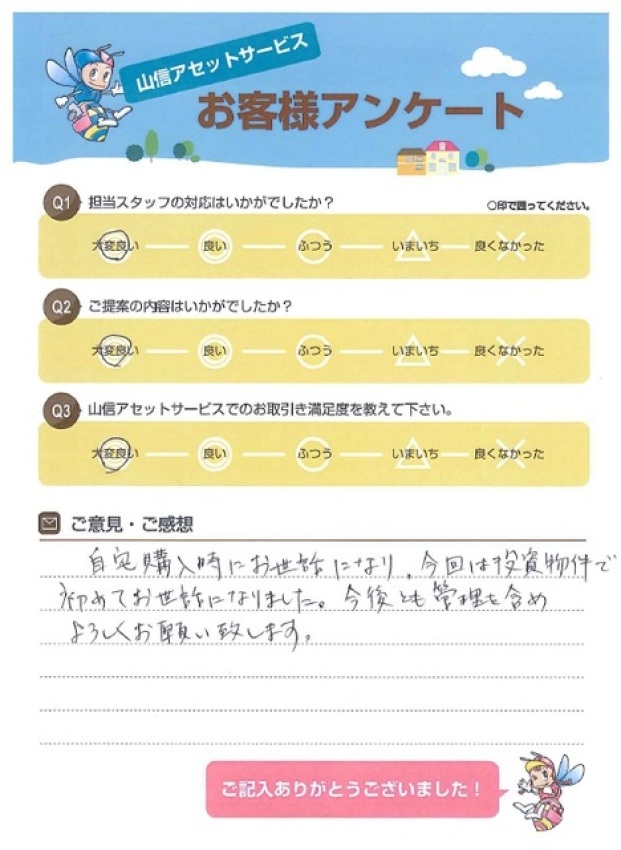 山信アセットサービス
お客様アンケート
Q1 担当スタッフの対応はいかがでしたか？ ○印で囲ってください。
大変良い 良い ふつう いまいち 良くなかった
Q2 ご提案の内容はいかがでしたか？
大変良い 良い ふつう いまいち 良くなかった
Q3 山信アセットサービスでのお取引き満足度を教えて下さい。
大変良い 良い ふつう いまいち 良くなかった
ご意見・ご感想
自宅購入時にお世話になり、今回は投資物件で
初めてお世話になりました。今後とも管理も含め
よろしくお願い致します。
ご記入ありがとうございました！